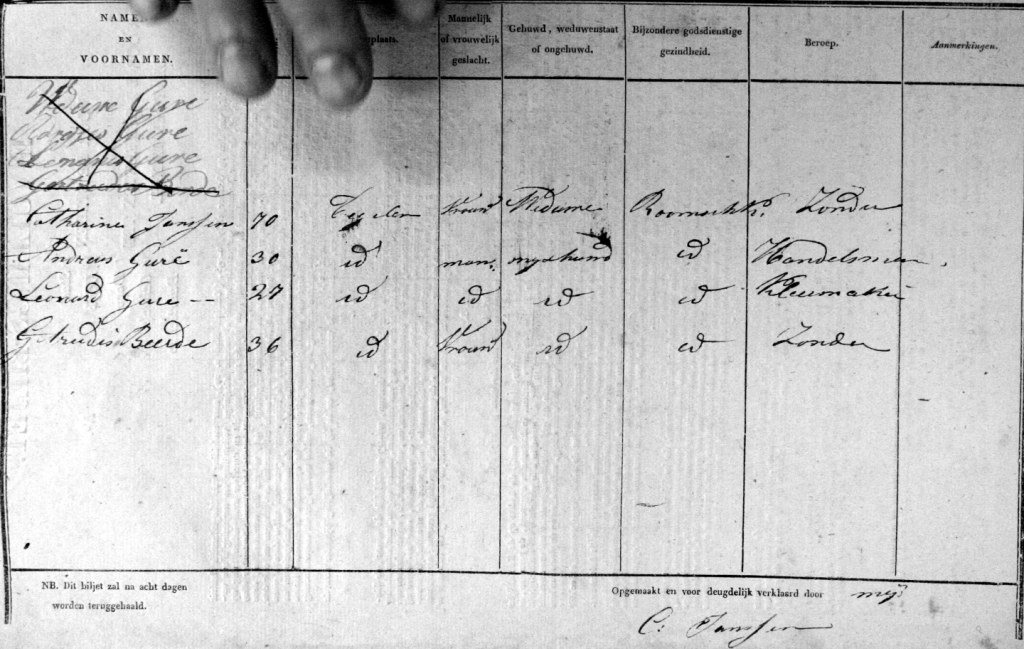 NAMEN
EN
VOORNAMEN.
plaats.
Mannelijk of vrouwelijk geslacht.
Gehuwd, weduwenstaat of ongehuwd.
Bijzondere godsdienstige gezindheid.
Beroep.
Aanmerkingen.
Gure
Gure
Gure
Catharina Janssen 70 Vrouw Weduwe Roomsch K. Zonder
Andreas Guré 30 id man id Handelsman
Leonard Gure -- 27 id id id id
Getrudis Beerde 36 id Vrouw id id Zonder
NB. Dit biljet zal na acht dagen
worden teruggehaald.
Opgemaakt en voor deugdelijk verklaard door mij
C: Janssen